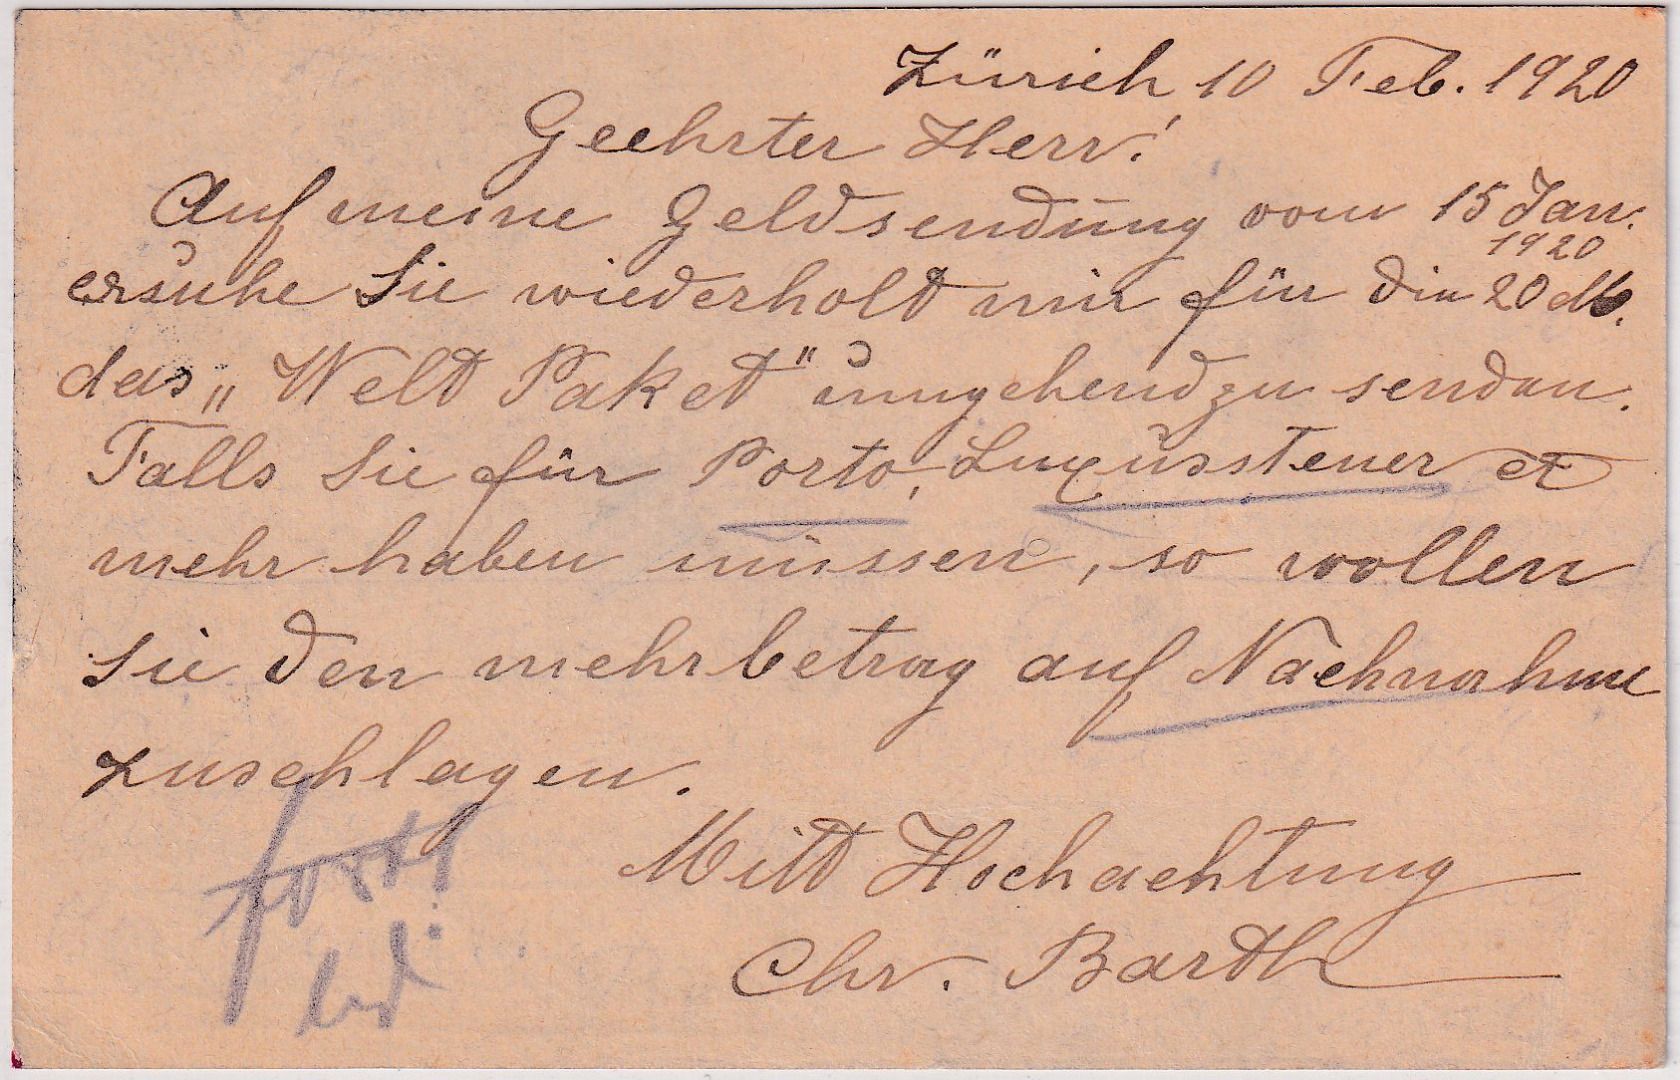 Zürich 10 Feb. 1920
Geehrter Herr!
Auf meine Geldsendung vom 15 Jan.
1920
ersuhe Sie wiederholt mir für die 20 M.
das „Welt Paket" umgehend zu senden.
Falls Sie für Porto, Luxussteuer et
mehr haben müssen, so wollen
Sie den mehrbetrag auf Nachnahme
zuschlagen.
Mitt Hochachtung
Chr. Barth
fort!